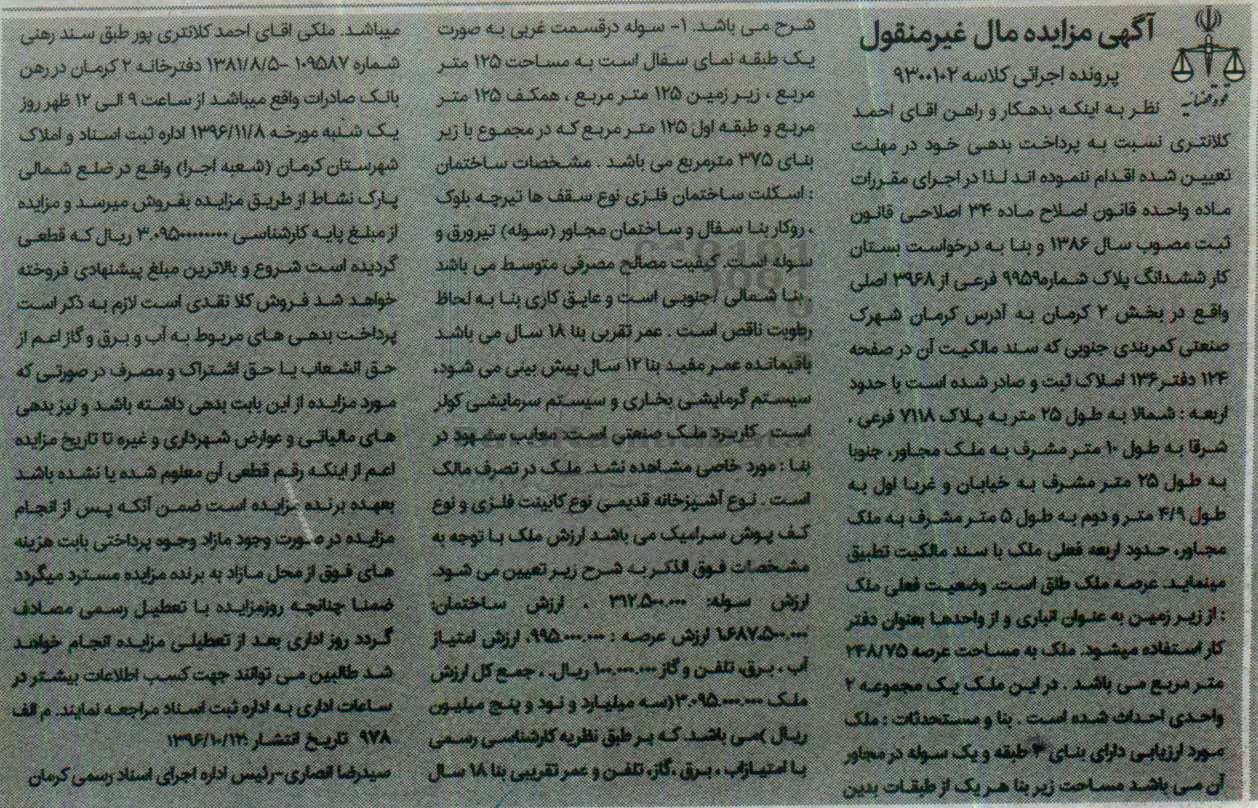 آگهی مزایده مال غیرمنقول
پرونده اجرائی کلاسه ۹۳۰۰۱۰۲
قوه قضائیه
نظر به اینکه بدهکار و راهن اقای احمد
کلانتری نسبت به پرداخت بدهی خود در مهلت
تعیین شده اقدام ننموده اند لذا در اجرای مقررات
ماده واحده قانون اصلاح ماده ۳۴ اصلاحی قانون
ثبت مصوب سال ۱۳۸۶ و بنا به درخواست بستان
کار ششدانگ پلاک شماره۹۹۵۹ فرعی از ۳۹۶۸ اصلی
واقع در بخش ۲ کرمان به آدرس کرمان شهرک
صنعتی کمربندی جنوبی که سند مالکیت آن در صفحه
۱۲۴ دفتر۱۳۶ املاک ثبت و صادر شده است با حدود
اربعه : شمالا به طول ۲۵ متر به پلاک ۷۱۱۸ فرعی ،
شرقا به طول ۱۰ متر مشرف به ملک مجاور، جنوبا
به طول ۲۵ متر مشرف به خیابان و غربا اول به
طول ۴/۹ متر و دوم به طول ۵ متر مشرف به ملک
مجاور، حدود اربعه فعلی ملک با سند مالکیت تطبیق
مینماید. عرصه ملک طلق است. وضعیت فعلی ملک
: از زیر زمین به عنوان انباری و از واحدها بعنوان دفتر
کار استفاده میشود. ملک به مساحت عرصه ۲۴۸/۷۵
متر مربع می باشد . در این ملک یک مجموعه ۲
واحدی احداث شده است . بنا و مستحدثات : ملک
مورد ارزیابی دارای بنای ۳ طبقه و یک سوله در مجاور
آن می باشد مساحت زیر بنا هر یک از طبقات بدین
شرح می باشد. ۱- سوله درقسمت غربی به صورت
یک طبقه نمای سفال است به مساحت ۱۲۵ متر
مربع ، زیر زمین ۱۲۵ متر مربع ، همکف ۱۲۵ متر
مربع و طبقه اول ۱۲۵ متر مربع که در مجموع با زیر
بنای ۳۷۵ مترمربع می باشد . مشخصات ساختمان
: اسکلت ساختمان فلزی نوع سقف ها تیرچه بلوک
، روکار بنا سفال و ساختمان مجاور (سوله) تیرورق و
سوله است. کیفیت مصالح مصرفی متوسط می باشد
. بنا شمالی /جنوبی است و عایق کاری بنا به لحاظ
رطوبت ناقص است . عمر تقربی بنا ۱۸ سال می باشد
باقیمانده عمر مفید بنا ۱۲ سال پیش بینی می شود.
سیستم گرمایشی بخاری و سیستم سرمایشی کولر
است . کاربرد ملک صنعتی است. معایب مشهود در
بنا : مورد خاصی مشاهده نشد. ملک در تصرف مالک
است . نوع آشپزخانه قدیمی نوع کابینت فلزی و نوع
کف پوش سرامیک می باشد ارزش ملک با توجه به
مشخصات فوق الذکر به شرح زیر تعیین می شود.
ارزش سوله: ۳۱۲.۵۰۰.۰۰۰ ، ارزش ساختمان:
۱.۶۸۷.۵۰۰.۰۰۰ ارزش عرصه : ۹۹۵.۰۰۰.۰۰۰، ارزش امتیاز
آب ، برق، تلفن و گاز ۱۰۰.۰۰۰.۰۰۰ ریال. ، جمع کل ارزش
ملک ۳.۰۹۵.۰۰۰.۰۰۰(سه میلیارد و نود و پنج میلیون
ریال )می باشد که بر طبق نظریه کارشناسی رسمی
با امتیازاب ، برق ،گاز، تلفن و عمر تقریبی بنا ۱۸ سال
میباشد. ملکی اقای احمد کلانتری پور طبق سند رهنی
شماره ۱۰۹۵۸۷ -۱۳۸۱/۸/۵ دفترخانه ۲ کرمان در رهن
بانک صادرات واقع میباشد از ساعت ۹ الی ۱۲ ظهر روز
یک شنبه مورخه ۱۳۹۶/۱۱/۸ اداره ثبت اسناد و املاک
شهرستان کرمان (شعبه اجرا) واقع در ضلع شمالی
پارک نشاط از طریق مزایده بفروش میرسد و مزایده
از مبلغ پایه کارشناسی ۳.۰۹۵۰۰۰۰۰۰۰ ریال که قطعی
گردیده است شروع و بالاترین مبلغ پیشنهادی فروخته
خواهد شد فروش کلا نقدی است لازم به ذکر است
پرداخت بدهی های مربوط به آب و برق و گاز اعم از
حق انشعاب یا حق اشتراک و مصرف در صورتی که
مورد مزایده از این بابت بدهی داشته باشد و نیز بدهی
های مالیاتی و عوارض شهرداری و غیره تا تاریخ مزایده
اعم از اینکه رقم قطعی آن معلوم شده یا نشده باشد
بعهده برنده مزایده است ضمن آنکه پس از انجام
مزایده در صورت وجود مازاد وجوه پرداختی بابت هزینه
های فوق از محل مازاد به برنده مزایده مسترد میگردد
ضمنا چنانچه روزمزایده با تعطیل رسمی مصادف
گردد روز اداری بعد از تعطیلی مزایده انجام خواهد
شد طالبین می توانند جهت کسب اطلاعات بیشتر در
ساعات اداری به اداره ثبت اسناد مراجعه نمایند. م الف
۹۷۸ تاریخ انتشار :۱۳۹۶/۱۰/۱۲
سیدرضا انصاری-رئیس اداره اجرای اسناد رسمی کرمان